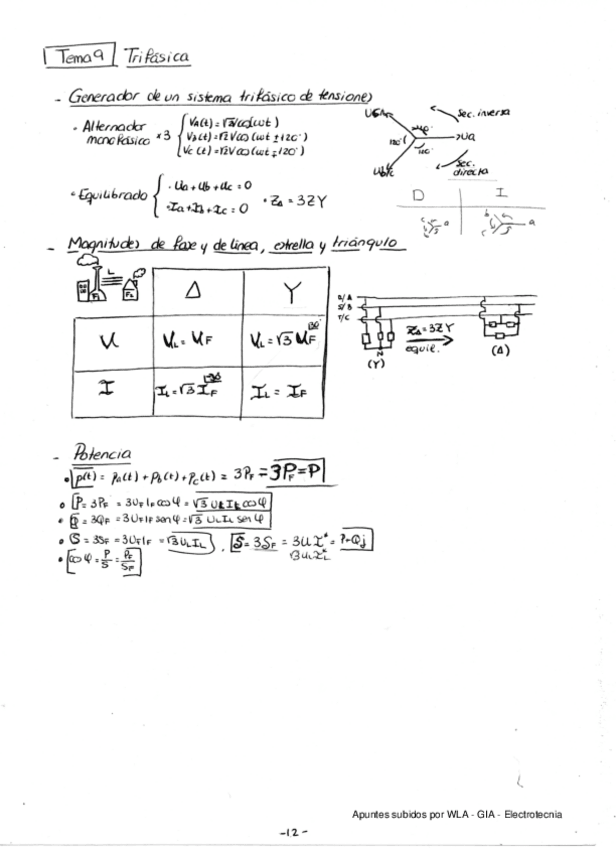 Tema 9 Trifásica
- Generador de un sistema trifásico de tensiones
· Alternador monofásico ×3
VA(t) = √2 V cos(ωt)
VB(t) = √2 V cos(ωt ± 120°)
VC(t) = √2 V cos(ωt ∓ 120°)
Sec. inversa
Ua
120°
Sec. directa
· Equilibrado
· Ua + Ub + Uc = 0
· Ia + Ib + Ic = 0
· ZΔ = 3ZY
D I
c a b
b a c
- Magnitudes de fase y de linea, estrella y triángulo
L
Δ Y
U UL = UF UL = √3 UF
I IL = √3 IF IL = IF
R/A
S/B
T/C
N
(Y)
ZΔ = 3ZY
equiv.
(Δ)
- Potencia
· p(t) = pA(t) + pB(t) + pC(t) = 3PF = 3PF = P
· P = 3PF = 3UF IF cos φ = √3 UL IL cos φ
· Q = 3QF = 3UF IF sen φ = √3 UL IL sen φ
· S = 3SF = 3UF IF = √3 UL IL , S = 3SF = 3U I* = P+Qj
√3 UL IL*
· cos φ = P/S = PF/SF
Apuntes subidos por WLA - GIA - Electrotecnia
-12-